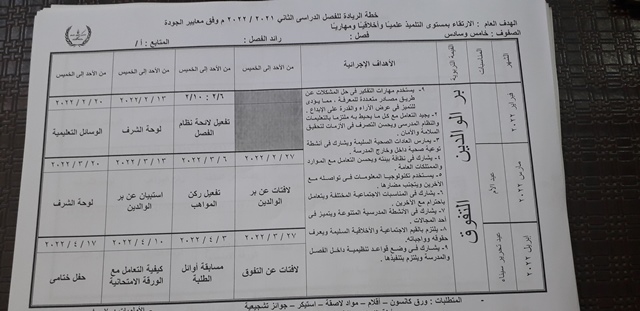 خطة الريادة للفصل الدراسى الثانى ٢٠٢١ / ٢٠٢٢ م وفق معايير الجودة
الهدف العام : الارتقاء بمستوى التلميذ علمياً وأخلاقياً ومهارياً
الصفوف : خامس وسادس
فصل :
رائد الفصل :
المتابع : أ /
الشهر
المناسبات
القيمة التربوية
الأهداف الإجرائية
من الأحد إلى الخميس
من الأحد إلى الخميس
من الأحد إلى الخميس
من الأحد إلى الخميس
فبراير ٢٠٢٢
بر الوالدين
٢/٦ : ٢/١٠
٢٠٢٢ / ٢ / ١٣
٢٠٢٢ / ٢ / ٢٠
تفعيل لائحة نظام الفصل
لوحة الشرف
الوسائل التعليمية
مارس ٢٠٢٢
عيد الأم
٢٠٢٢ / ٢ / ٢٧
٢٠٢٢ / ٣ / ٦
٢٠٢٢ / ٣ / ١٣
٢٠٢٢ / ٣ / ٢٠
لافتات عن بر الوالدين
تفعيل ركن المواهب
استبيان عن بر الوالدين
لوحة الشرف
إبريل ٢٠٢٢
عيد تحرير سيناء
التفوق
٢٠٢٢ / ٣ / ٢٧
٢٠٢٢ / ٤ / ٣
٢٠٢٢ / ٤ / ١٠
٢٠٢٢ / ٤ / ١٧
لافتات عن التفوق
مسابقة أوائل الطلبة
كيفية التعامل مع الورقة الامتحانية
حفل ختامى
يستخدم مهارات التفكير فى حل المشكلات عن
طريق مصادر متعددة للمعرفة ، مما يؤدى
للتميز فى عرض الأراء والقدرة على الإبداع .
٢- يجيد التعامل مع كل ما يحيط به ملتزما بالتعليمات
والنظام المدرسى ويحسن التصرف فى الأزمات لتحقيق
السلامة والأمان .
٣- يمارس العادات الصحية السليمة ويشارك فى أنشطة
توعية صحية داخل وخارج المدرسة .
٤- يشارك فى نظافة بيئته ويحسن التعامل مع الموارد
والممتلكات العامة .
٥- يستخدم تكنولوجيا المعلومات فى تواصله مع
الآخرين ويتجنب مضارها .
٦- يشارك فى المناسبات الاجتماعية المختلفة ويتعامل
باحترام مع الآخرين .
٧- يشارك فى الأنشطة المدرسية المتنوعة ويتميز فى
أحد المجالات .
٨- يلتزم بالقيم الاجتماعية والأخلاقية السليمة ويعرف
حقوقه وواجباته .
٩- يشارك فى وضع قواعد تنظيمية داخل الفصل
والمدرسة ويلتزم بتنفيذها .
المتطلبات : ورق كانسون – أقلام – مواد لاصقة – استيكر – جوائز تشجيعية